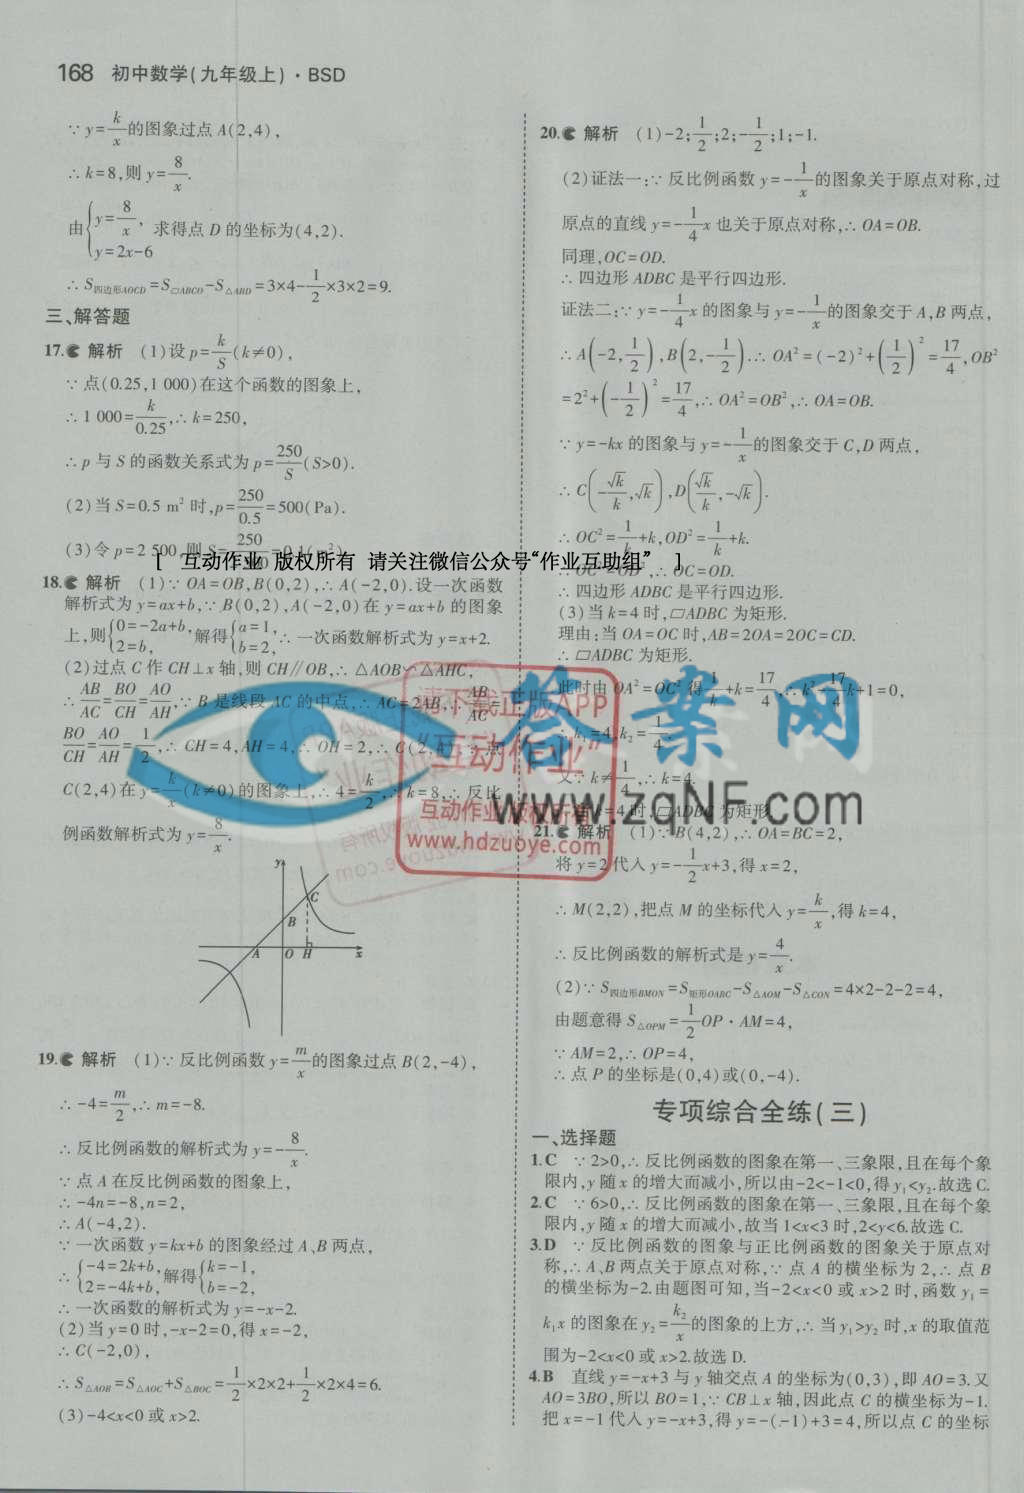 168 初中数学(九年级上)·BSD
∵y=k/x的图象过点A(2,4),
∴k=8,则y=8/x.
由{y=8/x, y=2x-6 求得点D的坐标为(4,2).
∴S四边形AOCD=S▱ABCO-S△ABD=3×4-1/2×3×2=9.
三、解答题
17. 解析 (1)设p=k/S(k≠0),
∵点(0.25,1 000)在这个函数的图象上,
∴1 000=k/0.25,∴k=250,
∴p与S的函数关系式为p=250/S(S>0).
(2)当S=0.5 m²时,p=250/0.5=500(Pa).
(3)令p=2 500,则S=
[ 互动作业 版权所有 请关注微信公众号“作业互助组” ]
18. 解析 (1)∵OA=OB,B(0,2),∴A(-2,0).设一次函数
解析式为y=ax+b,∵B(0,2),A(-2,0)在y=ax+b的图象
上,则{0=-2a+b, 2=b, 解得{a=1, b=2, ∴一次函数解析式为y=x+2.
(2)过点C作CH⊥x轴,则CH∥OB,∴△AOB∽△AHC,
∴AB/AC=BO/CH=AO/AH,∵B是线段AC的中点,∴AC=2AB,∴AB/AC=
BO/CH=AO/AH=1/2,∴CH=4,AH=4,∴OH=2,∴C(2,4).∵点
C(2,4)在y=k/x(k≠0)的图象上,∴4=k/2,∴k=8,∴反比
例函数解析式为y=8/x.
y
C
B
A O H x
19. 解析 (1)∵反比例函数y=m/x的图象过点B(2,-4),
∴-4=m/2,∴m=-8.
∴反比例函数的解析式为y=-8/x.
∵点A在反比例函数的图象上,
∴-4n=-8,n=2,
∴A(-4,2).
∵一次函数y=kx+b的图象经过A、B两点,
∴{-4=2k+b, 2=-4k+b, 解得{k=-1, b=-2,
∴一次函数的解析式为y=-x-2.
(2)当y=0时,-x-2=0,得x=-2,
∴C(-2,0),
∴S△AOB=S△AOC+S△BOC=1/2×2×2+1/2×2×4=6.
(3)-4<x<0或x>2.
20. 解析 (1)-2;1/2;2;-1/2;1;-1.
(2)证法一:∵反比例函数y=-1/x的图象关于原点对称,过
原点的直线y=-1/4x也关于原点对称,∴OA=OB.
同理,OC=OD.
∴四边形ADBC是平行四边形.
证法二:∵y=-1/4x的图象与y=-1/x的图象交于A,B两点,
∴A(-2,1/2),B(2,-1/2).∴OA²=(-2)²+(1/2)²=17/4,OB²
=2²+(-1/2)²=17/4,∴OA²=OB²,∴OA=OB.
∵y=-kx的图象与y=-1/x的图象交于C,D两点,
∴C(-√k/k,√k),D(√k/k,-√k).
∴OC²=1/k+k,OD²=1/k+k.
∴OC²=OD²,∴OC=OD.
∴四边形ADBC是平行四边形.
(3)当k=4时,▱ADBC为矩形.
理由:当OA=OC时,AB=2OA=2OC=CD.
∴▱ADBC为矩形.
此时由OA²=OC²得1/k+k=17/4,∴k²-17/4k+1=0,
∴k₁=4,k₂=1/4.
又∵k≠1/4,∴k=4.
=4时,▱ADBC为矩形.
21. 解析 (1)∵B(4,2),∴OA=BC=2,
将y=2代入y=-1/2x+3,得x=2,
∴M(2,2),把点M的坐标代入y=k/x,得k=4,
∴反比例函数的解析式是y=4/x.
(2)∵S四边形BMON=S矩形OABC-S△AOM-S△CON=4×2-2-2=4,
由题意得S△OPM=1/2OP·AM=4,
∵AM=2,∴OP=4,
∴点P的坐标是(0,4)或(0,-4).
专项综合全练(三)
一、选择题
1.C ∵2>0,∴反比例函数的图象在第一、三象限,且在每个象
限内,y随x的增大而减小,所以由-2<-1<0,得y₁<y₂.故选C.
2.C ∵6>0,∴反比例函数的图象在第一、三象限,且在每个象
限内,y随x的增大而减小,故当1<x<3时,2<y<6.故选C.
3.D ∵反比例函数的图象与正比例函数的图象关于原点对
称,∴A、B两点关于原点对称,∵点A的横坐标为2,∴点B
的横坐标为-2.由题图可知,当-2<x<0或x>2时,函数y₁=
k₁x的图象在y₂=k₂/x的图象的上方,∴当y₁>y₂时,x的取值范
围为-2<x<0或x>2.故选D.
4.B 直线y=-x+3与y轴交点A的坐标为(0,3),即AO=3.又
AO=3BO,所以BO=1,∵CB⊥x轴,因此点C的横坐标为-1.
把x=-1代入y=-x+3,得y=-(-1)+3=4,所以点C的坐标
请下载正版APP
“互动作业”
互动作业 版权所有
www.hdzuoye.com
答案网
www.zqNF.com